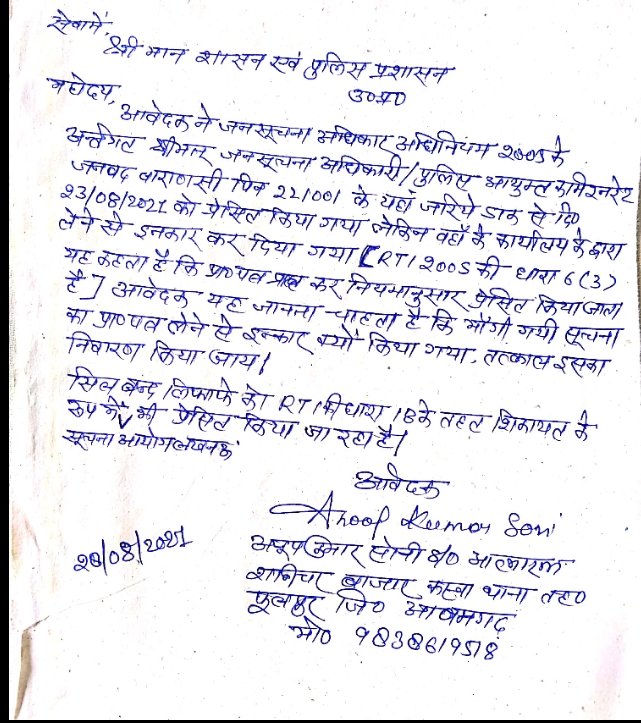 सेवामें,
श्री मान शासन एवं पुलिस प्रशासन
उ०प्र०
महोदय,
आवेदक ने जनसूचना अधिकार अधिनियम 2005 के
अर्न्तगत श्रीमान जनसूचना अधिकारी/पुलिस आयुक्त कमिश्नरेट
जनपद वाराणसी पिन 221001 के यहाँ जरिये डाक से दि०
23/08/2021 को प्रेसित किया गया लेकिन वहाँ के कार्यालय के द्वारा
लेने से इनकार कर दिया गया। [RTI 2005 की धारा 6(3)
यह कहता है कि प्रा०पत्र प्राप्त कर नियमानुसार प्रेसित किया जाता
है] आवेदक यह जानना चाहता है कि माँगी गयी सूचना
का प्रा०पत्र लेने से इन्कार क्यों किया गया, तत्काल इसका
निवारण किया जाय।
सिल बन्द लिफाफे को RTI की धारा 18 के तहत शिकायत के
रूप में भी प्रेसित किया जा रहा है।
सूचना आयोग लखनऊ
आवेदक
Anoop Kumar Soni
28/08/2021
अनूप कुमार सोनी S/o आत्माराम
शनिचर बाजार कस्बा थाना तह०
फूलपुर जि० आजमगढ़
मो० 9838619518